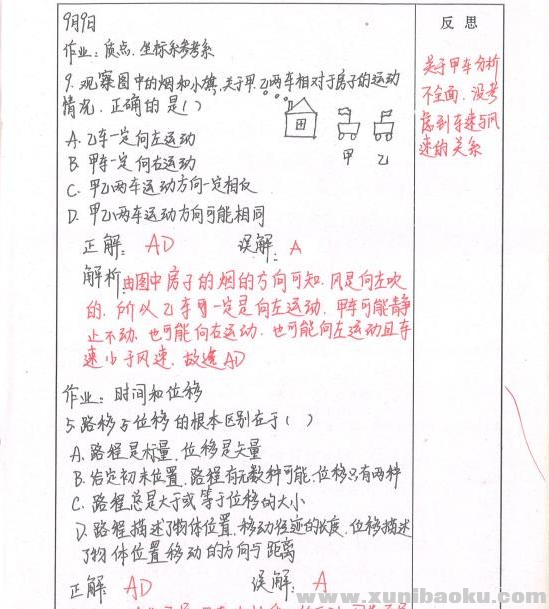 9月9日
反思
作业：质点.坐标系参考系
9.观察图中的烟和小旗,关于甲.乙两车相对于房子的运动
情况.正确的是( )
A.乙车一定向左运动
B.甲车一定向右运动
C.甲乙两车运动方向一定相反
D.甲乙两车运动方向可能相同
甲 乙
正解：AD 误解：A
解析:由图中房子的烟的方向可知.风是向左吹
的.所以乙车一定是向左运动.甲车可能静
止不动.也可能向右运动.也可能向左运动且车
速小于风速.故选AD
关于甲车分析
不全面.没考
虑到车速与风
速的关系
作业：时间和位移
5.路移与位移的根本区别在于( )
A.路程是标量.位移是矢量
B.给定初末位置.路程有无数种可能.位移只有两种
C.路程总是大于或等于位移的大小
D.路程描述了物体位置.移动径迹的长度.位移描述
了物体位置移动的方向与距离
正解：AD 误解：A
www.xunibaoku.com